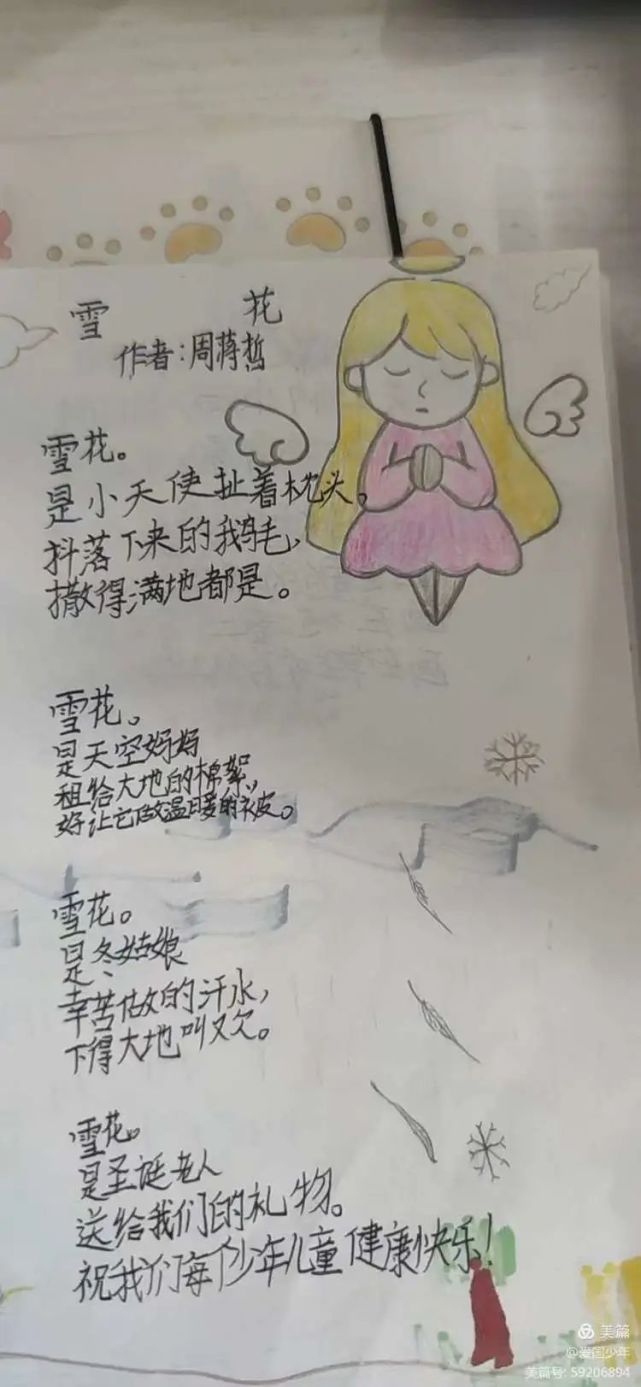 雪 花
作者:周蒋哲
雪花。
是小天使扯着枕头,
抖落下来的鹅毛,
撒得满地都是。
雪花。
是天空妈妈
租给大地的棉絮,
好让它做温暖的衣皮。
雪花。
是冬姑娘
辛苦做的汗水,
下得大地叫又欠。
雪花。
是圣诞老人
送给我们的礼物。
祝我们每个少年儿童健康快乐!
美篇
@爱国少年
美篇号: 59206894